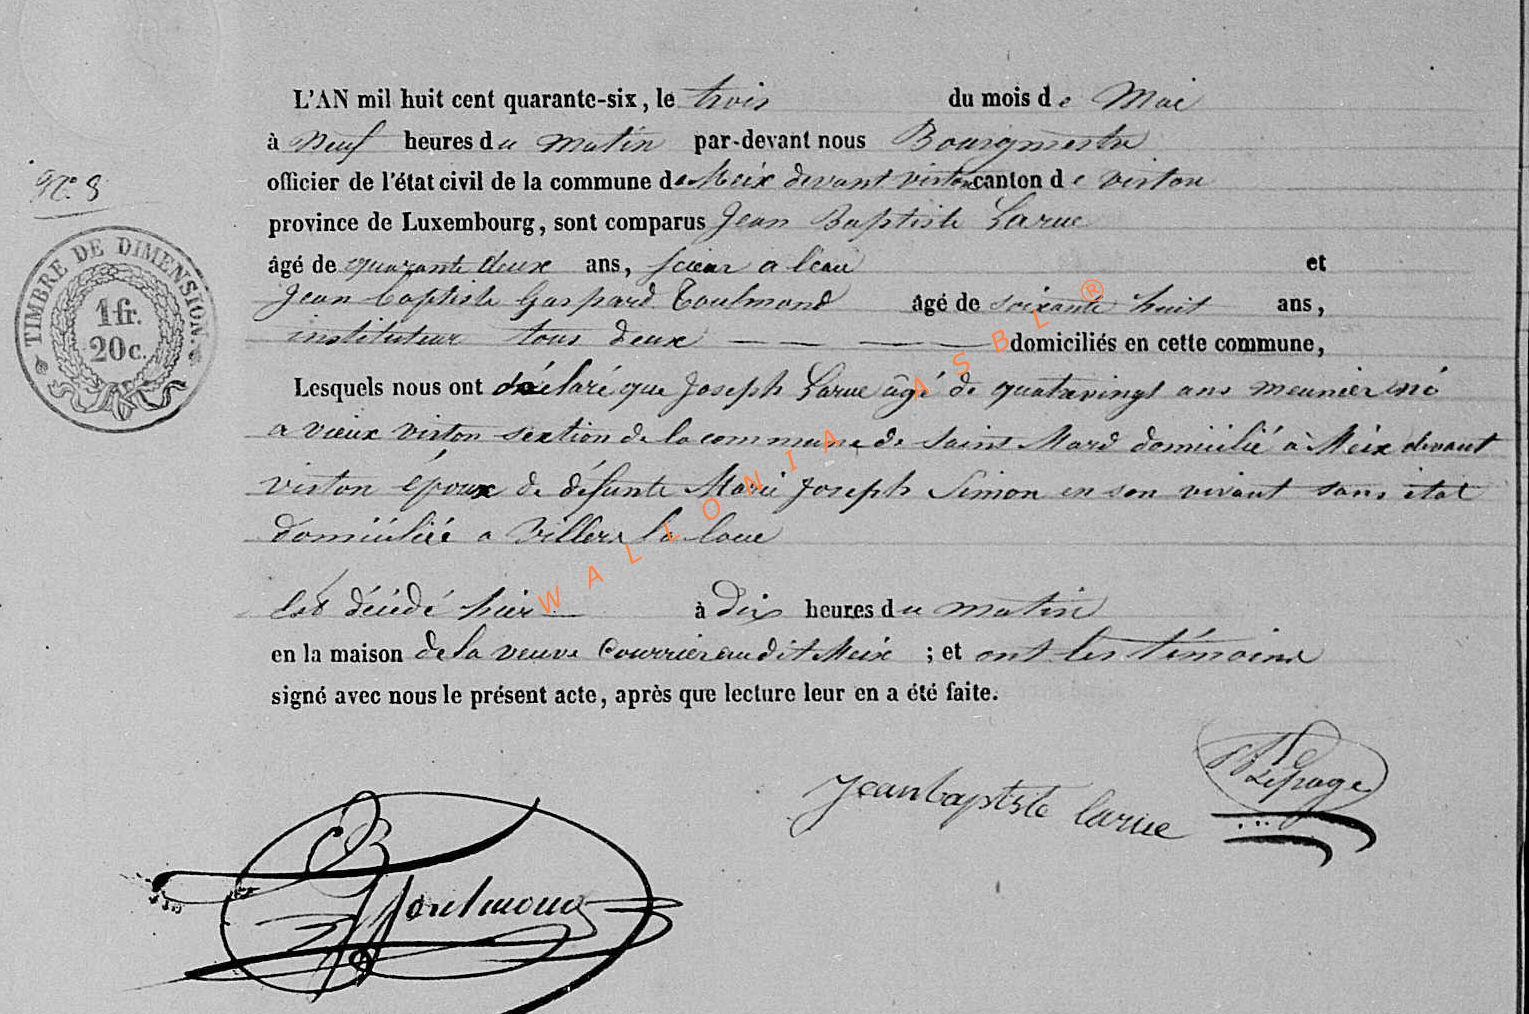 L'AN mil huit cent quarante-six, le trois du mois de Mai
à Neuf heures du matin par-devant nous Bourgmestre
officier de l'état civil de la commune de Meix devant virton canton de virton
N.o 8
province de Luxembourg, sont comparus Jean Baptiste Larue
âgé de quarante deux ans, scieur a l'eau et
Jean baptiste Gaspard Toulmond âgé de soixante huit ans,
instituteur tous deux — — — — domiciliés en cette commune,
TIMBRE DE DIMENSION.
1 fr.
20 c.
Lesquels nous ont déclaré que Joseph Larue âgé de quatrevingt ans meunier né
a vieux virton section de la commune de Saint Mard domicilié à Meix devant
virton époux de défunte Marie Joseph Simon en son vivant sans état
domiciliée a Villers la loue
est décédé hier — à Dix heures du matin
en la maison de la veuve Courrier audit Meix ; et ont les témoins
signé avec nous le présent acte, après que lecture leur en a été faite.
Lepage
Jean baptiste larue
Toulmond
WALLONIA ASBL ®